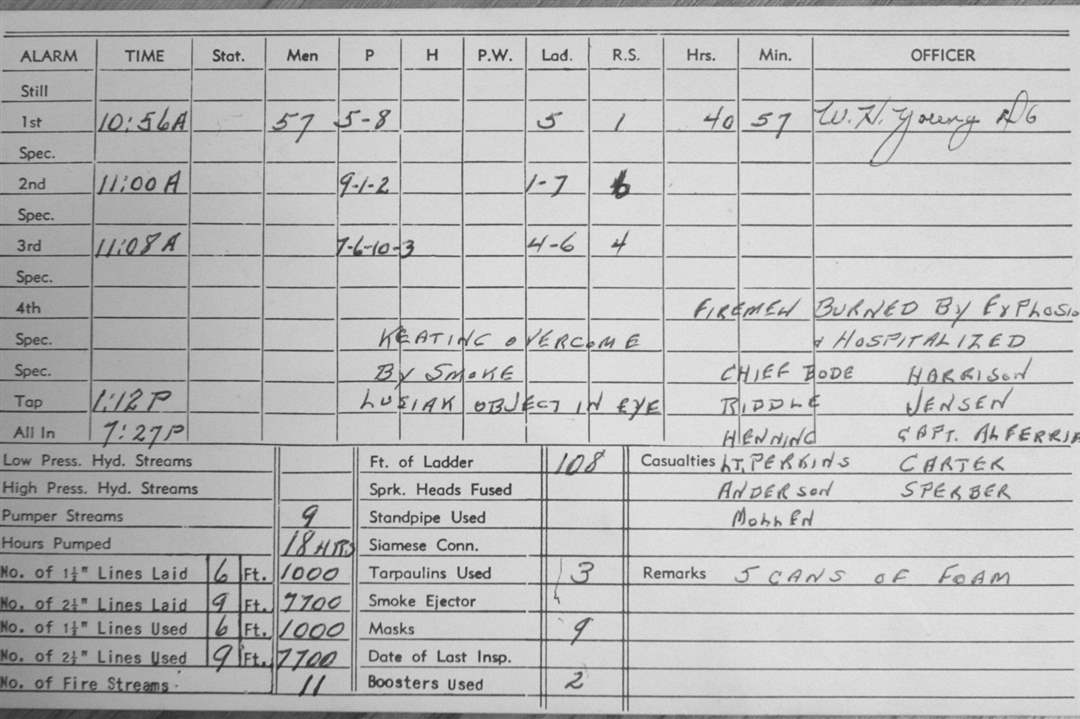 ALARM TIME Stat. Men P H P.W. Lad. R.S. Hrs. Min. OFFICER
Still
1st 10:56A 57 5-8 5 1 40 57 W. H. Young
Spec.
2nd 11:00A 9-1-2 1-7
Spec.
3rd 11:08A 7-6-10-3 4-6 4
Spec.
4th FIREMEN BURNED BY EXPLOSIO
Spec. KEATING OVERCOME & HOSPITALIZED
Spec. BY SMOKE CHIEF BODE HARRISON
Tap 1:12P LUSIAK OBJECT IN EYE RIDDLE JENSEN
All In 7:27P HENNING CAPT. ALFERRIA
Low Press. Hyd. Streams Ft. of Ladder 108 Casualties LT. PERKINS CARTER
High Press. Hyd. Streams Sprk. Heads Fused ANDERSON SPERBER
Pumper Streams 9 Standpipe Used MOLLEN
Hours Pumped 18 HRS Siamese Conn.
No. of 1½" Lines Laid 6 Ft. 1000 Tarpaulins Used 3 Remarks 5 CANS OF FOAM
No. of 2½" Lines Laid 9 Ft. 7700 Smoke Ejector
No. of 1½" Lines Used 6 Ft. 1000 Masks 9
No. of 2½" Lines Used 9 Ft. 7700 Date of Last Insp.
No. of Fire Streams 11 Boosters Used 2